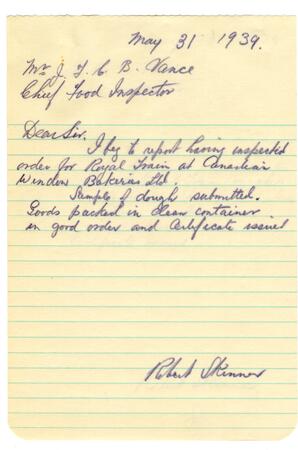 May 31 1939.
Mr J. F. C. B. Vance
Chief Food Inspector
Dear Sir.
I beg to report having inspected
order for Royal Train at Canadian
Window Bakeries Ltd
Sample of dough submitted.
Goods packed in clean container
in good order and certificate issued
Robert Skinner